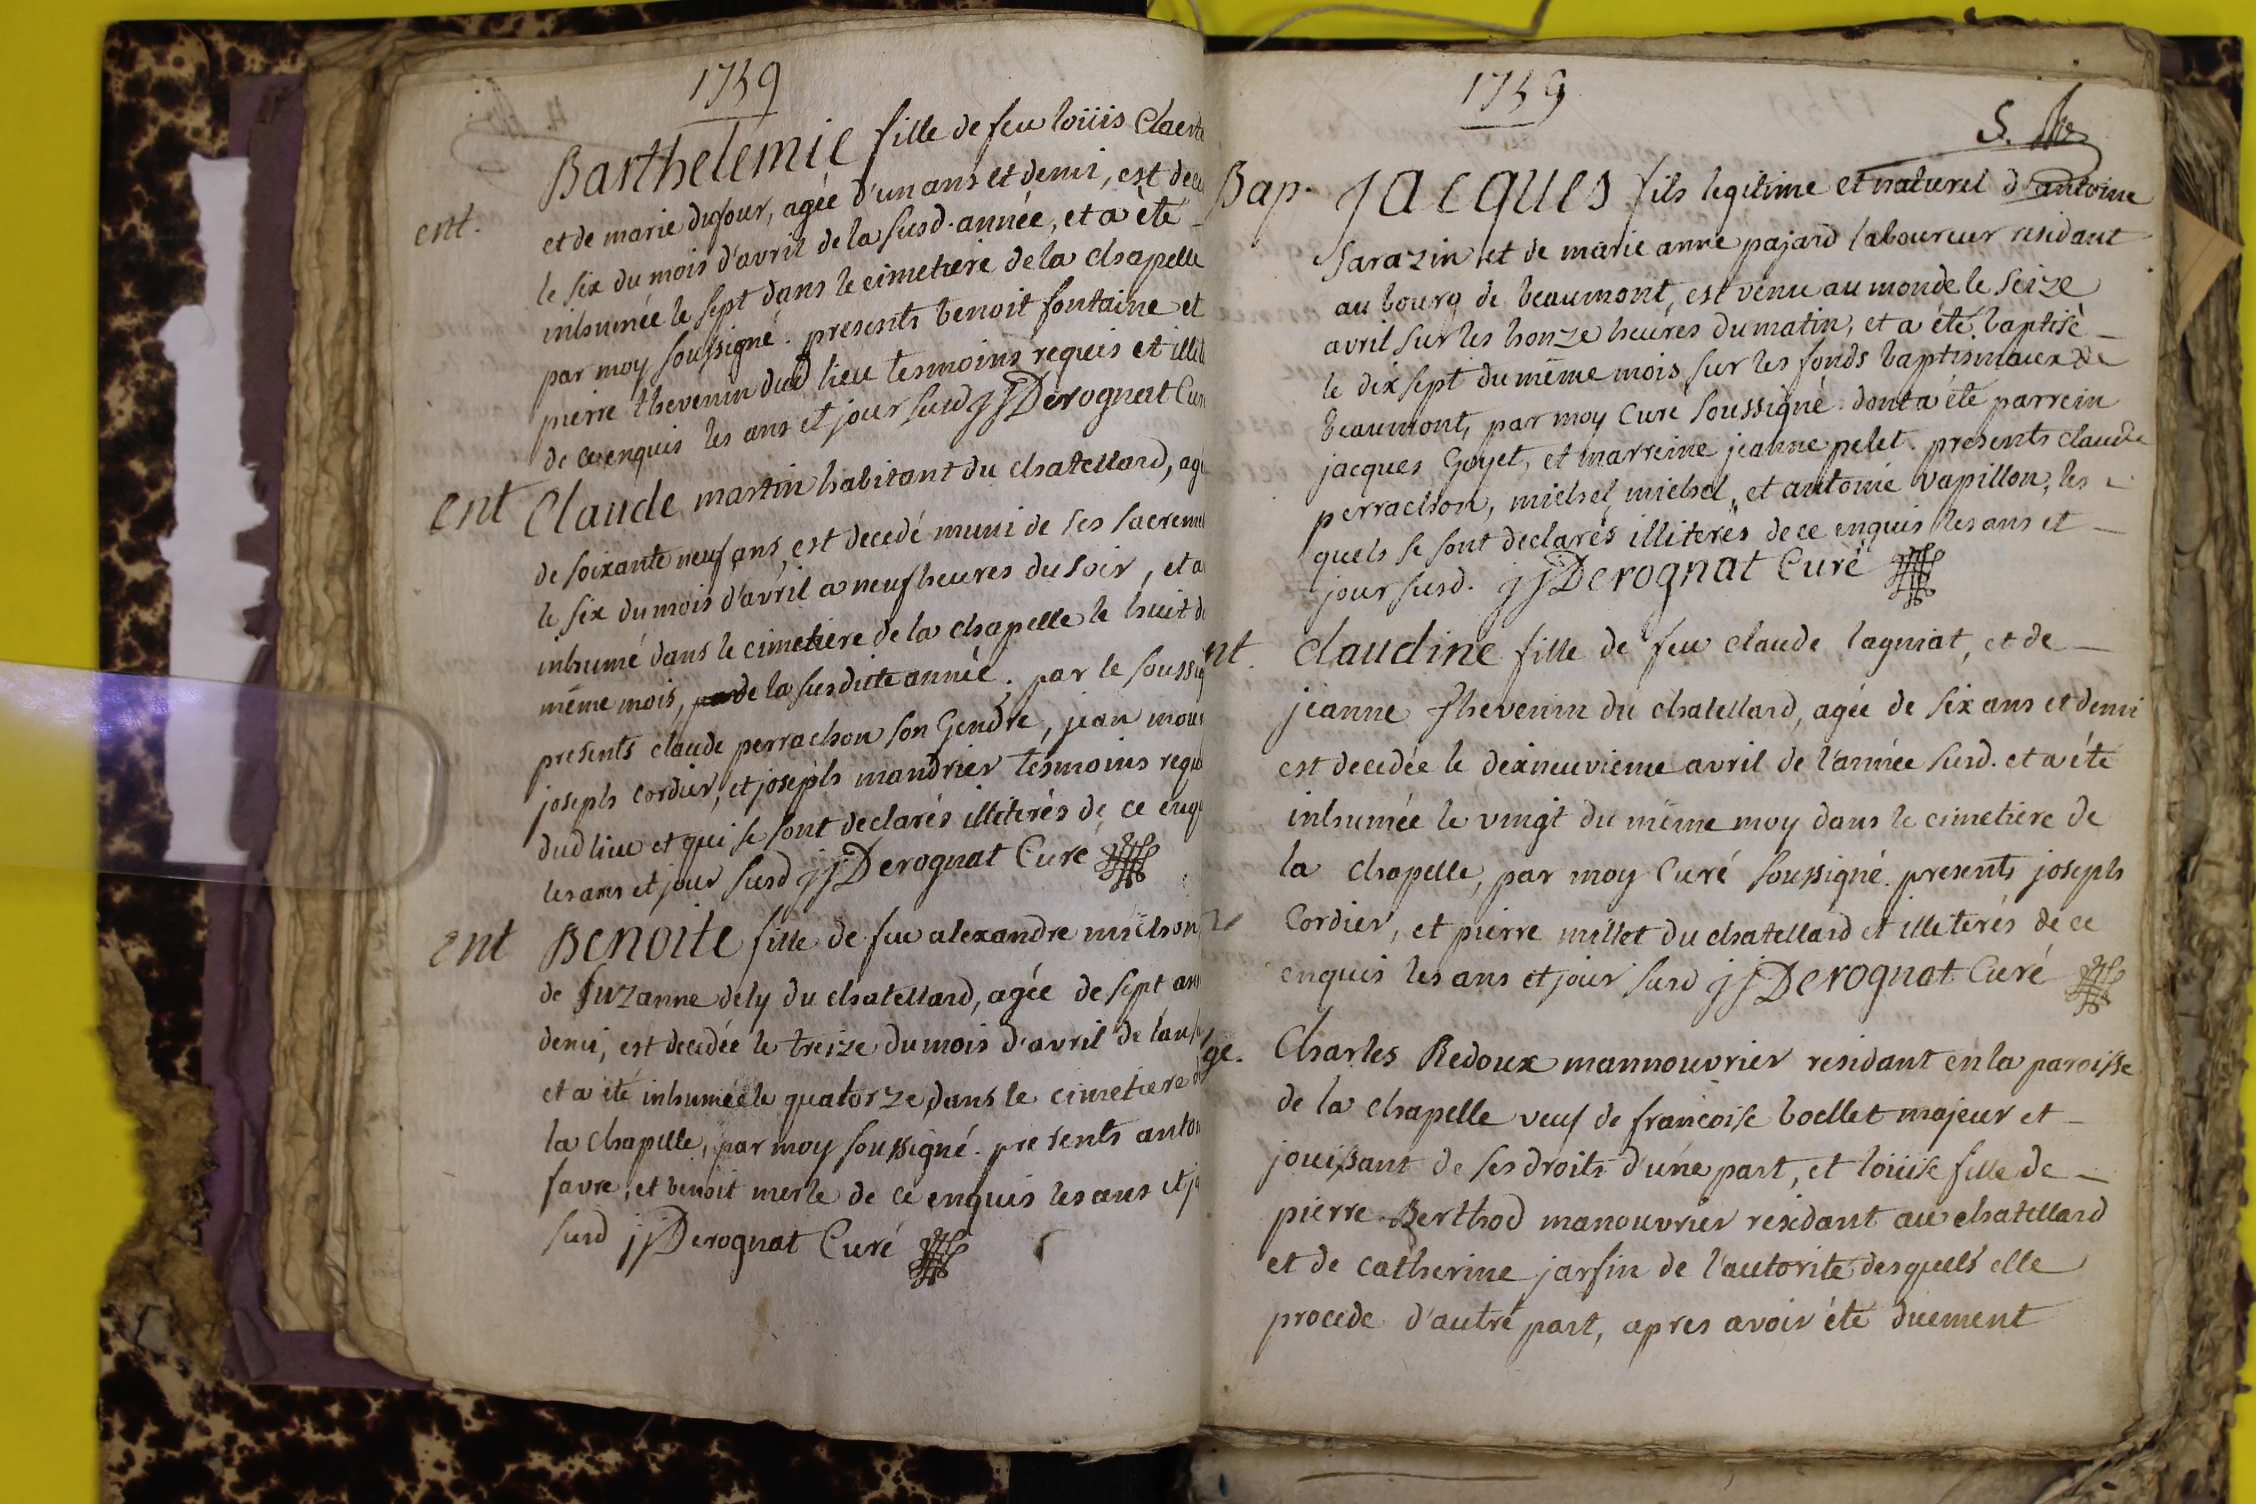 1759
ent.
Barthelemie fille de feu loüis Claert
et de marie dufour, agée d'un ans et demi, est dece
le six du mois d'avril de la susd. année, et a été
inhumée le sept dans le cimetiere de la chapelle
par moy soussigné. presents benoit fontaine et
pierre thevenin dud lieu tesmoins requis et illit
de ce enquis les ans et jour susd jjDerognat Cur
ent
Claude martin habitant du chatellard, ag
de soixante neuf ans, est decedé muni de ses sacrem
le six du mois d'avril a neuf heures du soir, et a
inhumé dans le cimetiere de la chapelle le huit d
même mois, de la susditte année. par le soussig
presents claude perrachon son Gendre, jean mou
joseph cordier, et joseph mandrier tesmoins requ
dud lieu et qui se sont declarés illiterés de ce enq
les ans et jour susd jjDerognat Curé
ent
Benoite fille de feu alexandre michon
de Suzanne dely du chatellard, agée de sept an
demi, est decedée le treize du mois d'avril de l'an s
et a été inhumée le quatorze dans le cimetiere d
la chapelle, par moy soussigné. presents anton
favre, et benoit merle de ce enquis les ans et j
susd jjDerognat Curé
1759
5.
Bap.
Jacques fils legitime et naturel d'antoine
Sarazin et de marie anne pajard laboureur residant
au bourg de beaumont, est venu au monde le seize
avril sur les honze heures du matin, et a été baptisé
le dix sept du même mois sur les fonds baptismaux de
beaumont, par moy Curé soussigné. dont a été parrein
jacques Goyet, et marreine jeanne pelet. presents claude
perrachon, michel michel, et antoine vapillon, les
quels se sont declarés illiterés de ce enquis les ans et
jour susd. jjDerognat Curé
nt.
Claudine fille de feu claude lagniat, et de
jeanne Thevenin du chatellard, agée de six ans et demi
est decedée le dixneuvieme avril de l'année susd. et a été
inhumée le vingt du même moy dans le cimetiere de
la chapelle, par moy Curé soussigné. presents joseph
Cordier, et pierre millet du chatellard et illiterés de ce
enquis les ans et jour susd jjDerognat Curé
ge.
Charles Redoux mannouvrier residant en la paroisse
de la chapelle veuf de francoise boellet majeur et
jouissant de ses droits d'une part, et loüise fille de
pierre Berthod manouvrier residant au chatellard
et de catherine jarsin de l'autorité desquels elle
procede d'autre part, apres avoir été duement